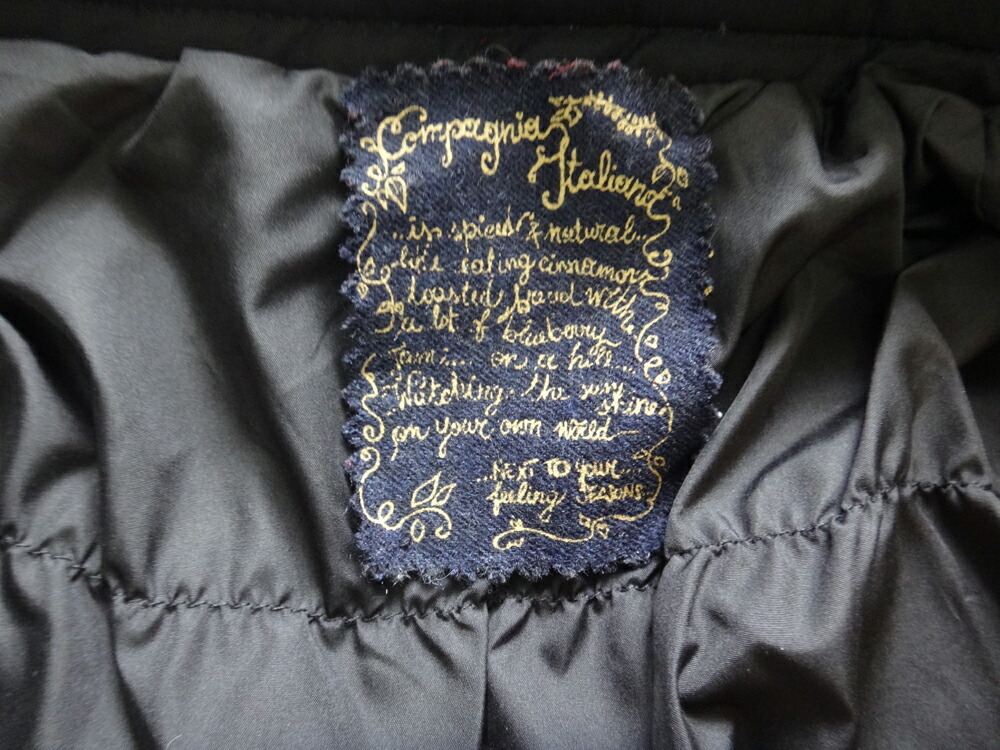 Compagnia
Italiana
...is spiced & natural...
like eating cinnamon
toasted bread with
a lot of blueberry
jam.... on a hill...
Watching the sun
shine
on your own world
...NEXT TO your
feeling JEANS